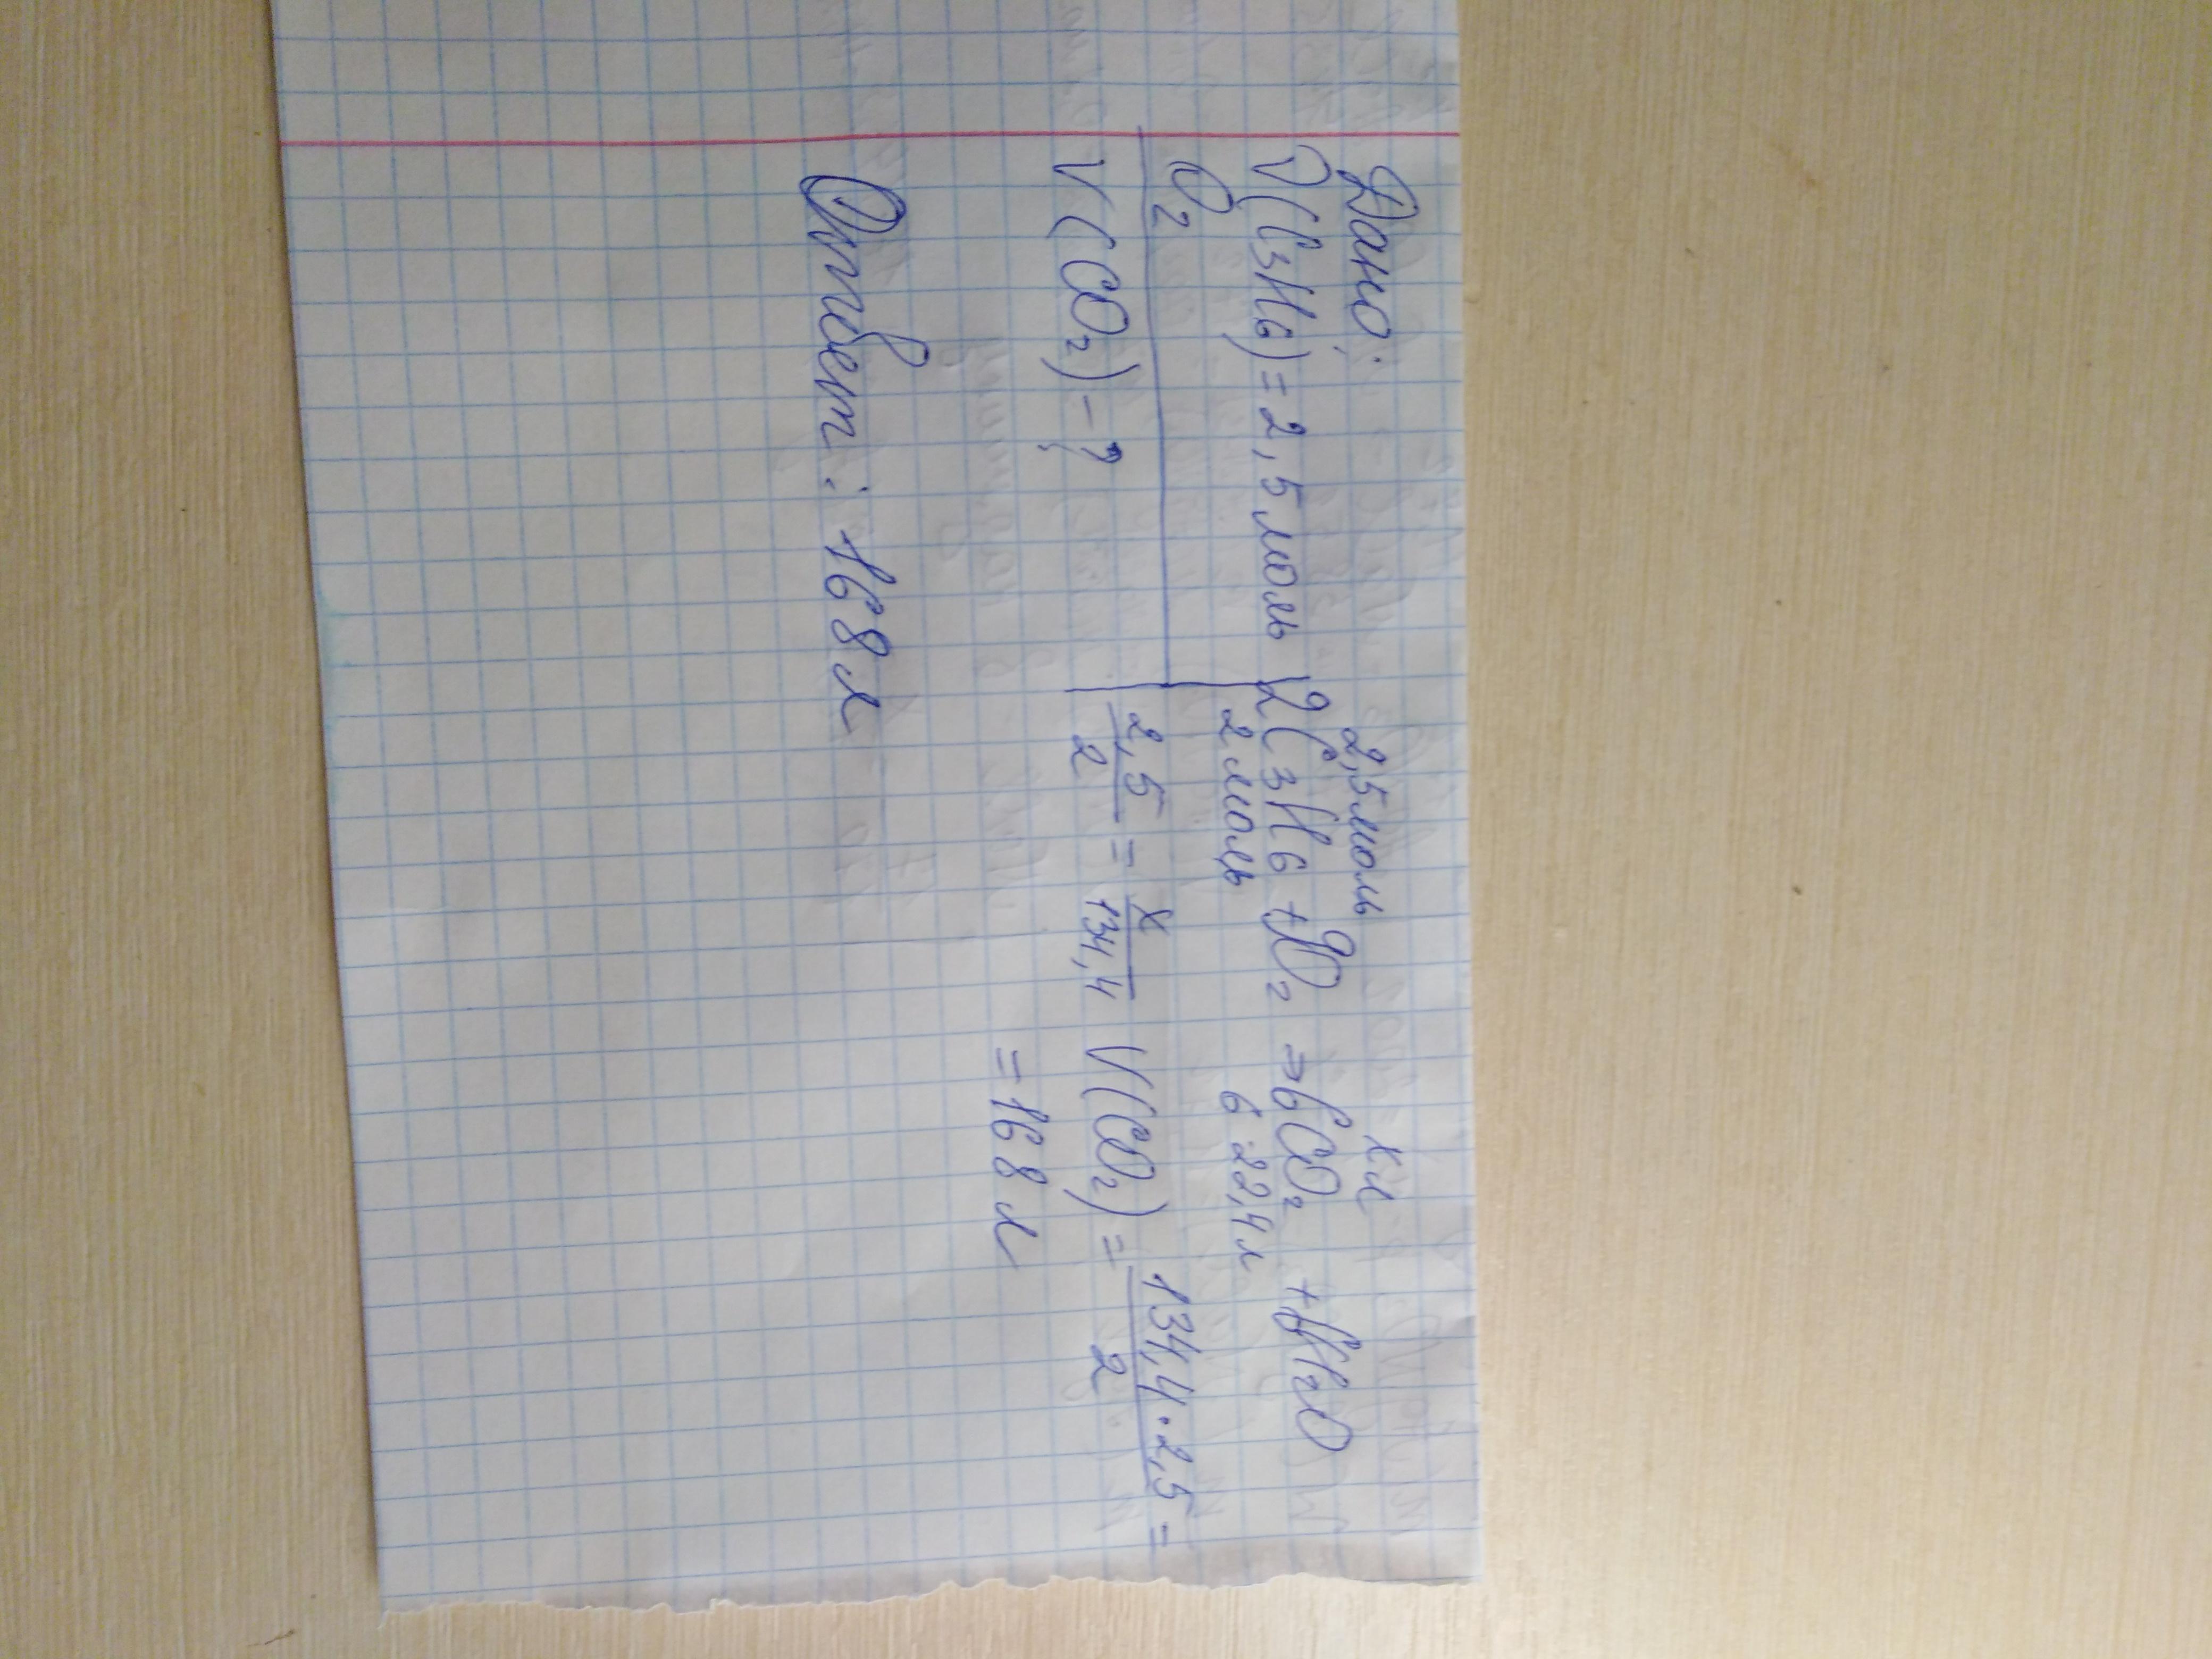 Дано:
ν(C₃H₆)=2,5моль
O₂
V(CO₂)-?
2,5моль xл
2C₃H₆+9O₂ → 6CO₂ + 6H₂O
2 моль 6 22,4л
2,5/2 = x/134,4 V(CO₂) = 134,4·2,5/2 =
= 168 л
Ответ: 168 л